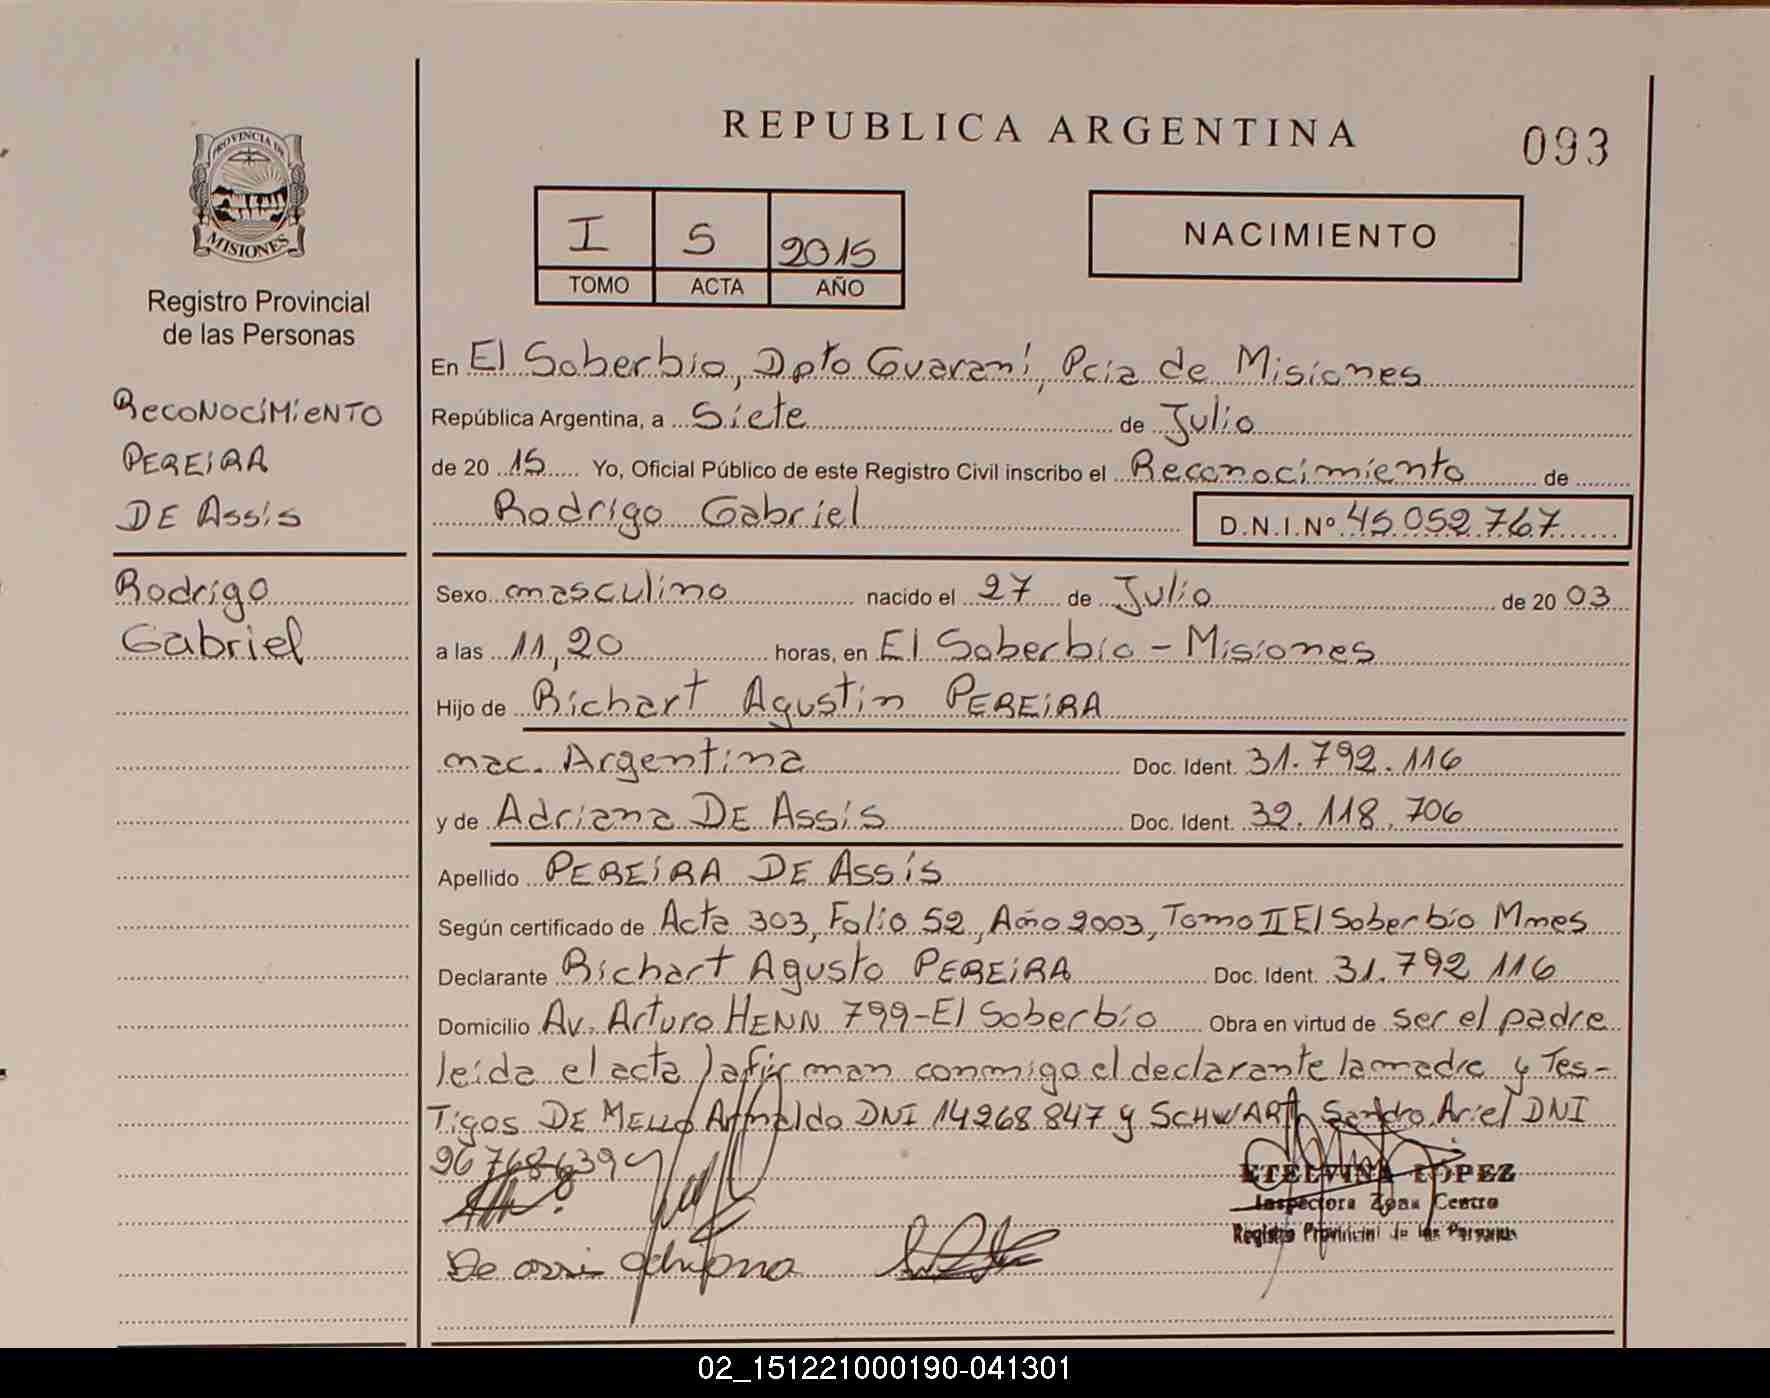 REPUBLICA ARGENTINA
093
PROVINCIA DE
MISIONES
Registro Provincial
de las Personas
I S 2015
TOMO ACTA AÑO
NACIMIENTO
RECONOCIMIENTO
PEREIRA
DE Assis
Rodrigo
Gabriel
En El Soberbio, Dpto Guaraní, Pcia de Misiones
República Argentina, a Siete de Julio
de 20 15 Yo, Oficial Público de este Registro Civil inscribo el Reconocimiento de
Rodrigo Gabriel D.N.I.Nº 45.052.767
Sexo masculino nacido el 27 de Julio de 20 03
a las 11,20 horas, en El Soberbio - Misiones
Hijo de Richart Agustin PEREIRA
nac. Argentina Doc. Ident. 31.792.116
y de Adriana DE Assis Doc. Ident. 32.118.706
Apellido PEREIRA DE Assis
Según certificado de Acta 303, Folio 52, Año 2003, Tomo II El Soberbio Mnes
Declarante Richart Agusto PEREIRA Doc. Ident. 31.792 116
Domicilio Av. Arturo HENN 799-El Soberbio Obra en virtud de ser el padre
leida el acta la firman conmigo el declarante la madre y Tes-
Tigos DE MELLO Arnaldo DNI 14268847 y SCHWART Sandro Ariel DNI
ETELVINA LOPEZ
Inspectora Zona Centro
Registro Provincial de las Personas
De assi adriana
02_151221000190-041301